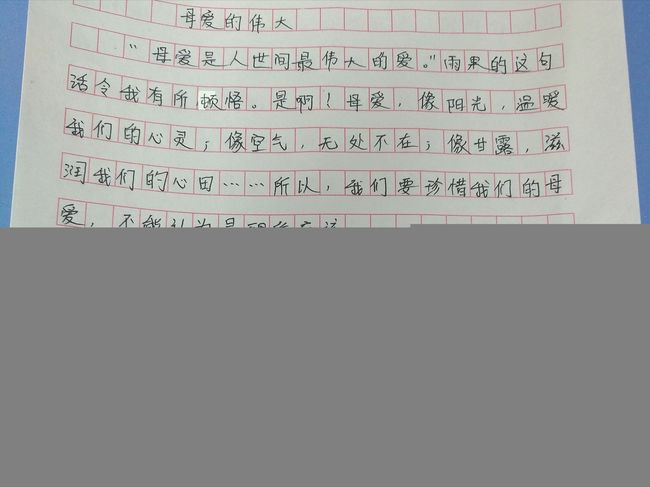 母爱的伟大
"母爱是人世间最伟大的爱。"雨果的这句
话令我有所顿悟。是啊！母爱，像阳光，温暖
我们的心灵；像空气，无处不在；像甘露，滋
润我们的心田……所以，我们要珍惜我们的母
爱，不能认为是理所